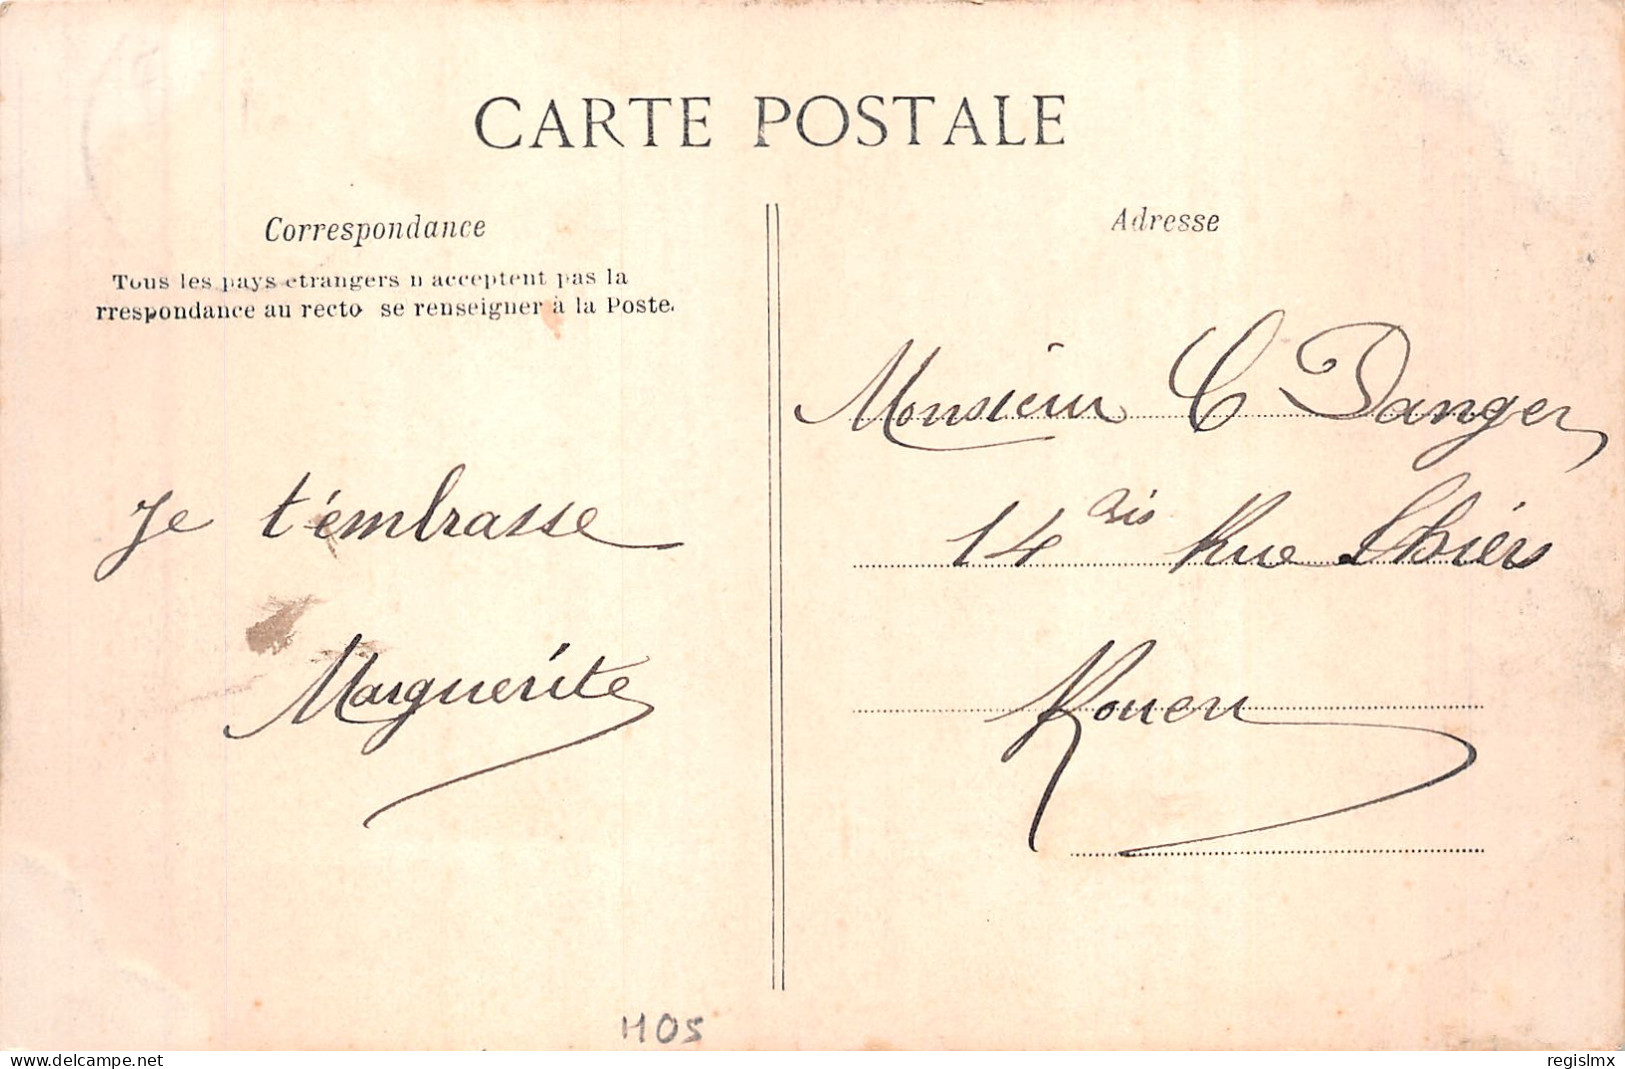 CARTE POSTALE
Correspondance
Tous les pays etrangers n acceptent pas la
rrespondance au recto se renseigner à la Poste.
Je t'embrasse
Marguerite
Adresse
Monsieur C Danger
14 bis Rue Thiers
Rouen
1105
www.delcampe.net
regislmx